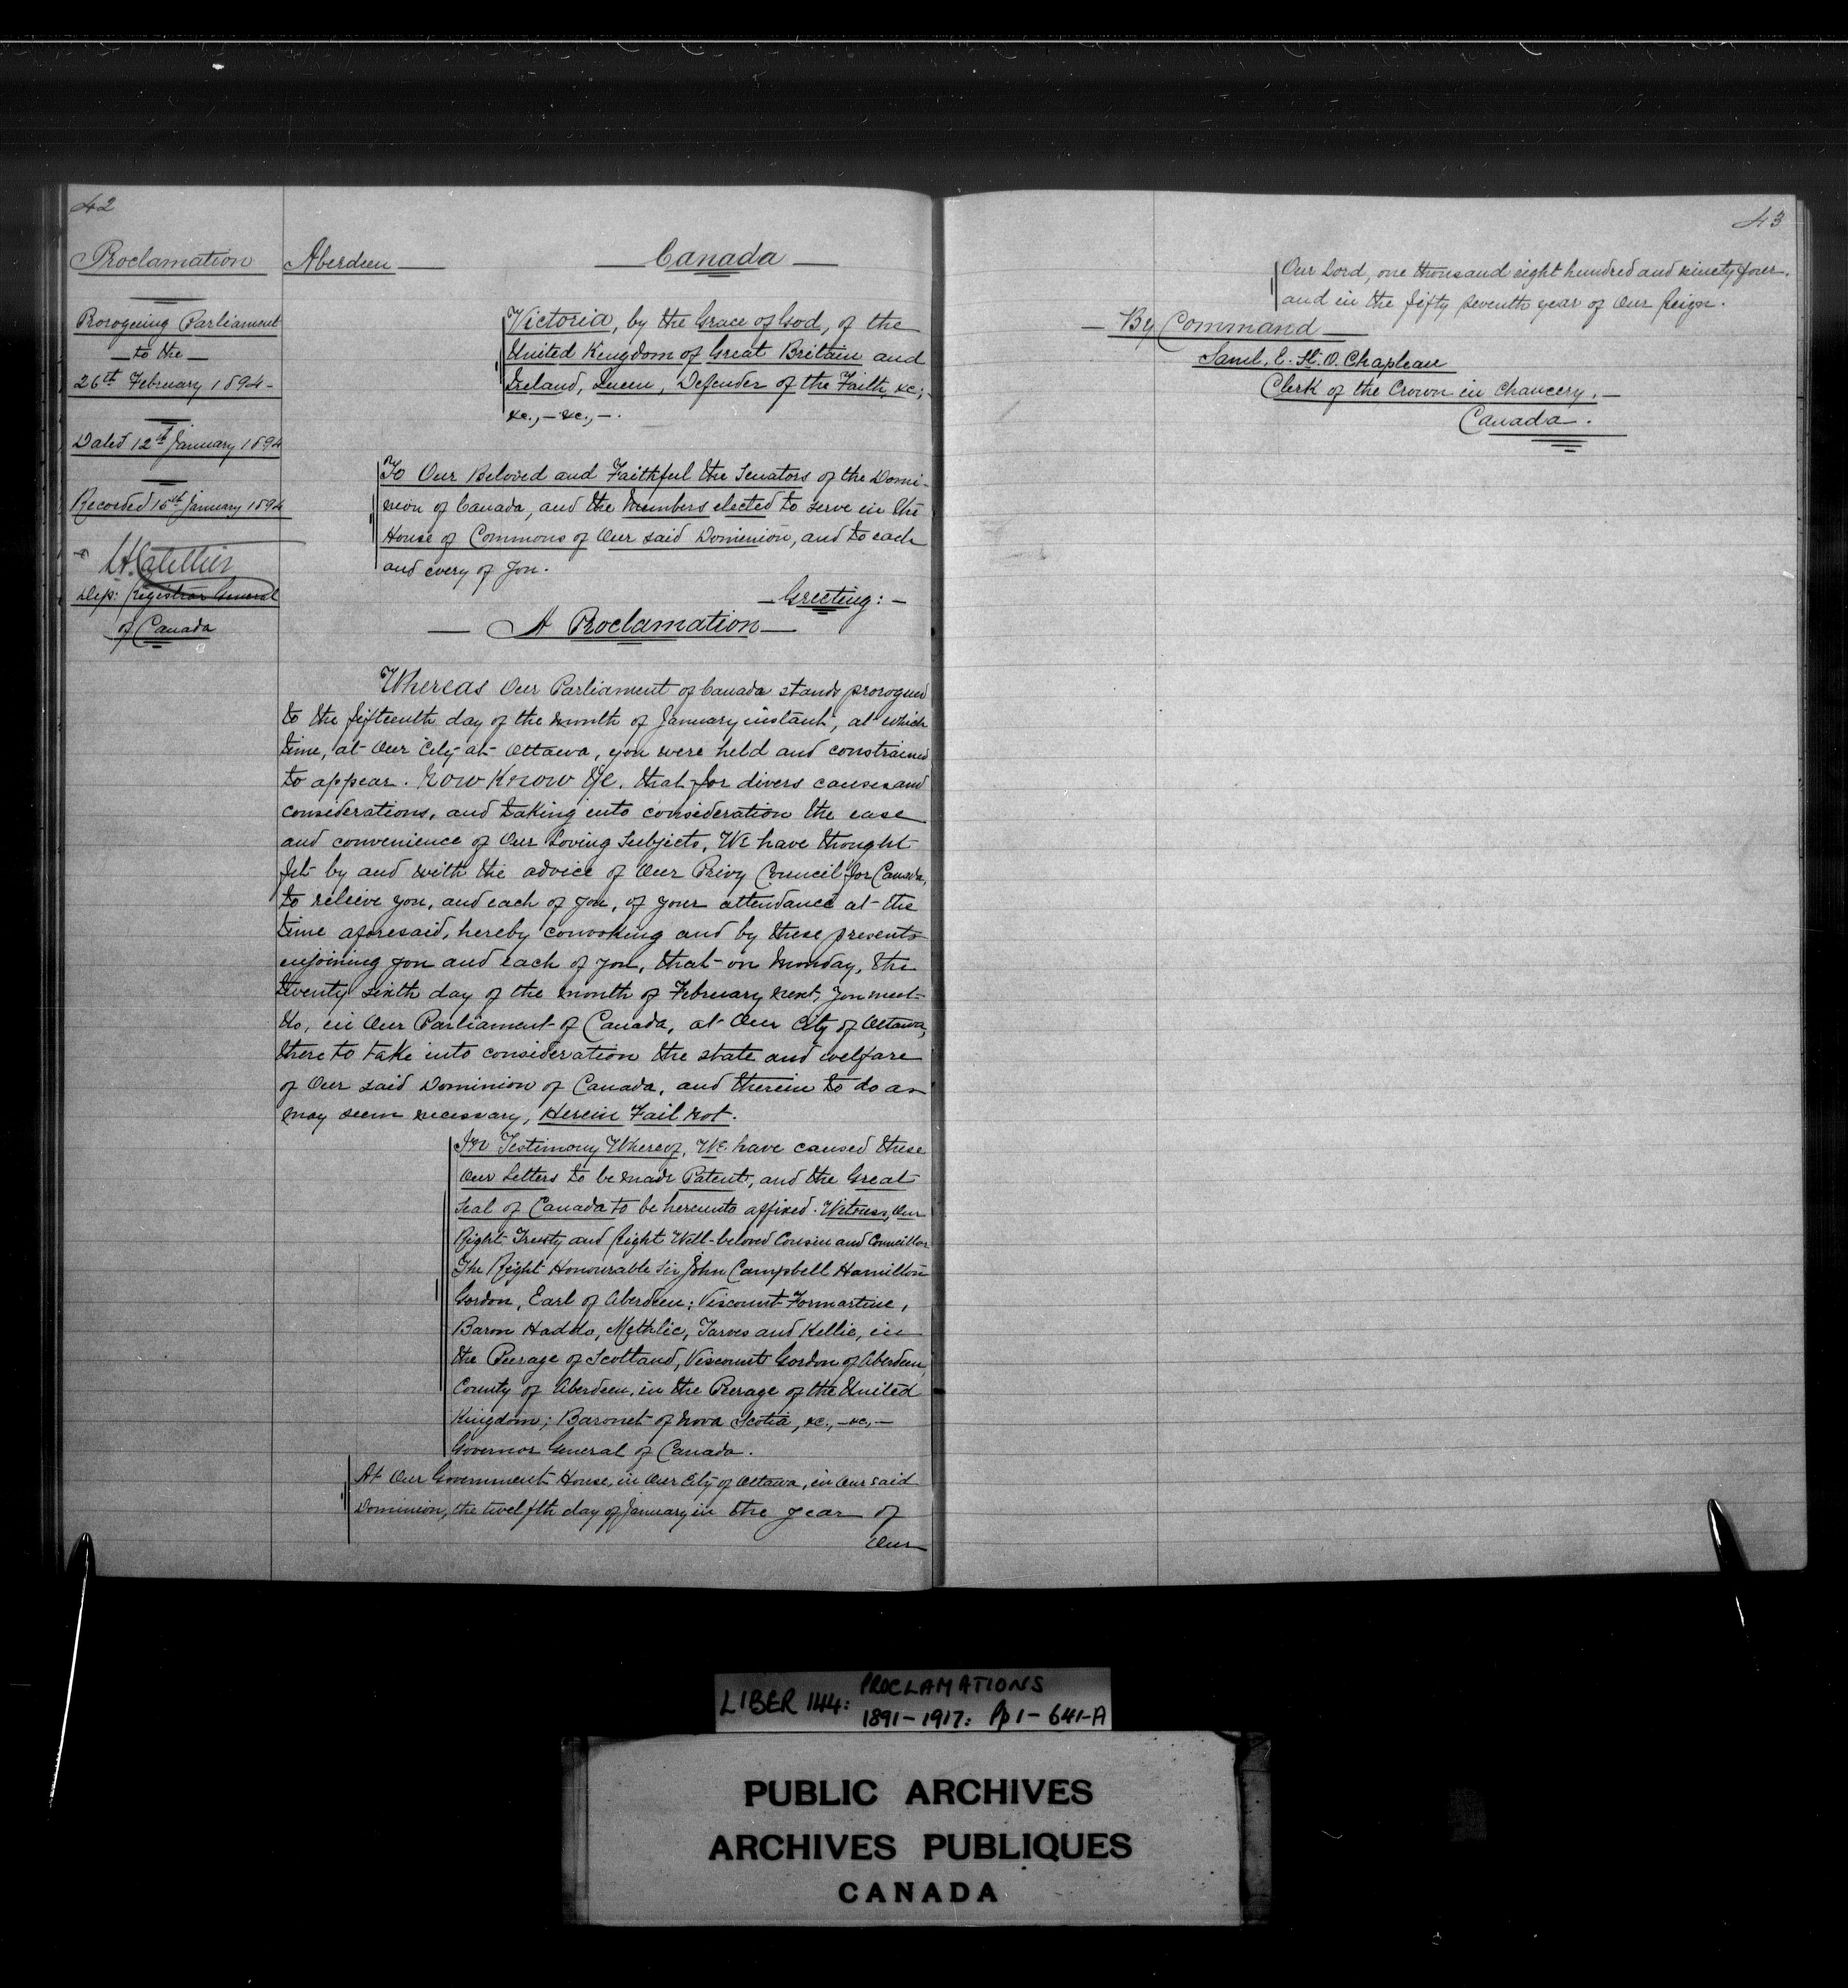 42
Proclamation
Proroguing Parliament
to the
26th February 1894
Dated 12th January 1894
Recorded 15th January 1894
Dep: Registrar General
of Canada
Aberdeen
Canada
Victoria, by the Grace of God, of the
United Kingdom of Great Britain and
Ireland, Queen, Defender of the Faith, &c;
&c., - &c., -.
To Our Beloved and Faithful the Senators of the Domi-
nion of Canada, and the Members elected to serve in the
House of Commons of Our said Dominion, and to each
and every of you.
Greeting:
A Proclamation
Whereas Our Parliament of Canada stands prorogued
to the fifteenth day of the month of January instant, at which
time, at Our City at Ottawa, you were held and constrained
to appear. Now Know Ye, that for divers causes and
considerations, and taking into consideration the ease
and convenience of Our Loving Subjects, We have thought
fit by and with the advice of Our Privy Council for Canada,
to relieve you, and each of you, of your attendance at the
time aforesaid, hereby convoking and by these presents
enjoining you and each of you, that on Monday, the
twenty sixth day of the month of February next, you meet
Us, in Our Parliament of Canada, at Our City of Ottawa,
there to take into consideration the state and welfare
of Our said Dominion of Canada, and therein to do as
may seem necessary, Herein Fail not.
In Testimony Whereof, We have caused these
Our Letters to be made Patent, and the Great
Seal of Canada to be hereunto affixed. Witness, Our
Right Trusty and Right Well-beloved Cousin and Councillor
The Right Honourable Sir John Campbell Hamilton
Gordon, Earl of Aberdeen; Viscount Formartine,
Baron Haddo, Methlic, Tarves and Kellie, in
the Peerage of Scotland, Viscount Gordon of Aberdeen
County of Aberdeen, in the Peerage of the United
Kingdom; Baronet of Nova Scotia, &c., - &c., -
Governor General of Canada.
At Our Government House, in Our City of Ottawa, in Our said
Dominion, the twelfth day of January in the year of
Our
43
Our Lord, one thousand eight hundred and ninety four.
and in the fifty seventh year of Our Reign.
By Command
Saml. E. St. O. Chapleau
Clerk of the Crown in Chancery,
Canada.
LIBER 144: PROCLAMATIONS
1891-1917: Pp 1-641-A
PUBLIC ARCHIVES
ARCHIVES PUBLIQUES
CANADA